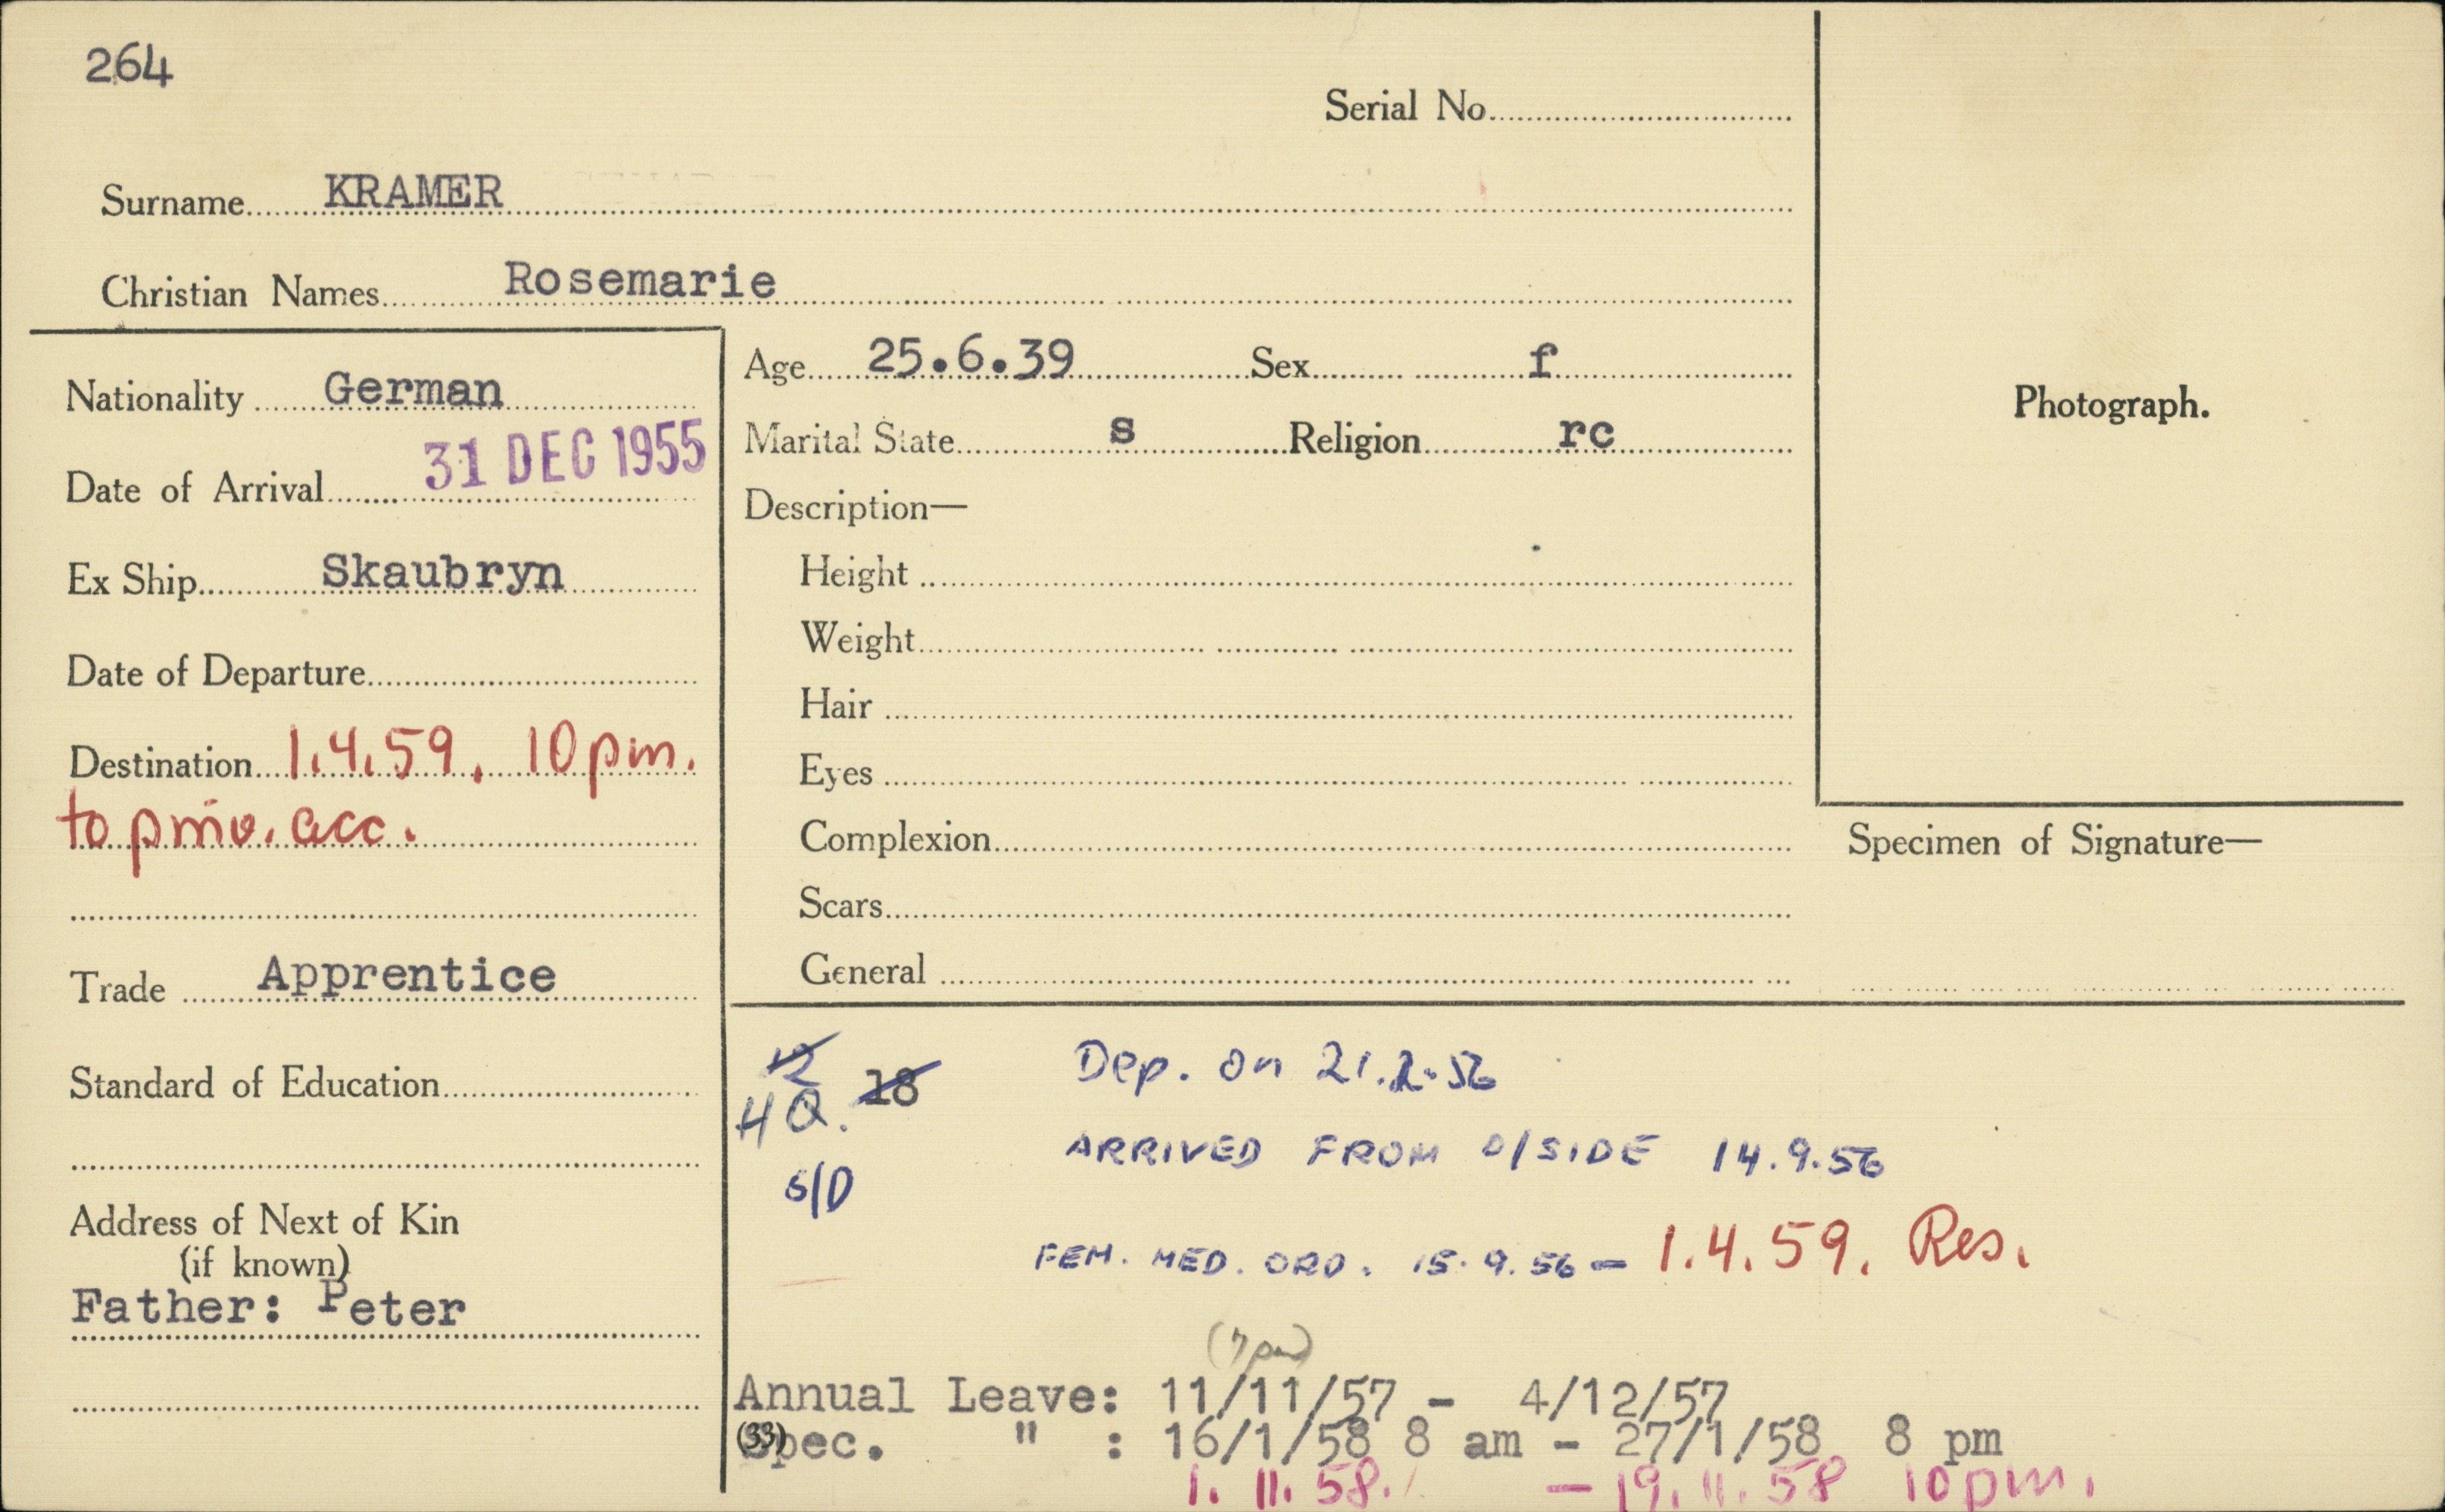 264
Serial No
Surname KRAMER
Christian Names Rosemarie
Nationality German
Date of Arrival 31 DEC 1955
Ex Ship Skaubryn
Date of Departure
Destination 1.4.59. 10pm.
to priv. acc.
Trade Apprentice
Standard of Education
Address of Next of Kin
(if known)
Father: Peter
Age 25.6.39 Sex f
Marital State s Religion rc
Description—
Height
Weight
Hair
Eyes
Complexion
Scars
General
Photograph.
Specimen of Signature—
12
HQ. 18
S/D
Dep. on 21.2.56
ARRIVED FROM O/SIDE 14.9.56
FEM. MED. ORD. 15.9.56 – 1.4.59. Res.
(7pm)
Annual Leave: 11/11/57 - 4/12/57
(33)
Spec. " : 16/1/58 8 am - 27/1/58 8 pm
1.11.58. – 19.11.58 10pm.